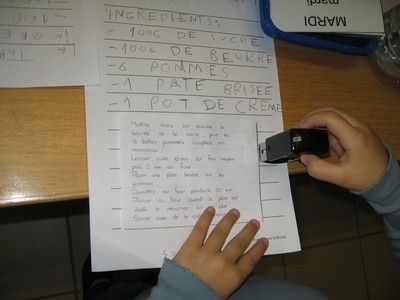 MARDI
mardi
INGREDIENTS:
- 100G DE SUCRE
- 100G DE BEURRE
- 6 POMMES
- 1 PÂTE BRISÉE
- 1 POT DE CRÈME
Mettre dans un moule le
beurre et le sucre, puis les
6 belles pommes coupées en
morceaux
Laisser cuire 10 mn sur feu moyen
puis 5 mn au four
Poser une pâte brisée sur les
pommes
Remettre au four pendant 20 mn
Retirer du four quand la pâte est
dorée et retourner sur un plat
Servir avec de la